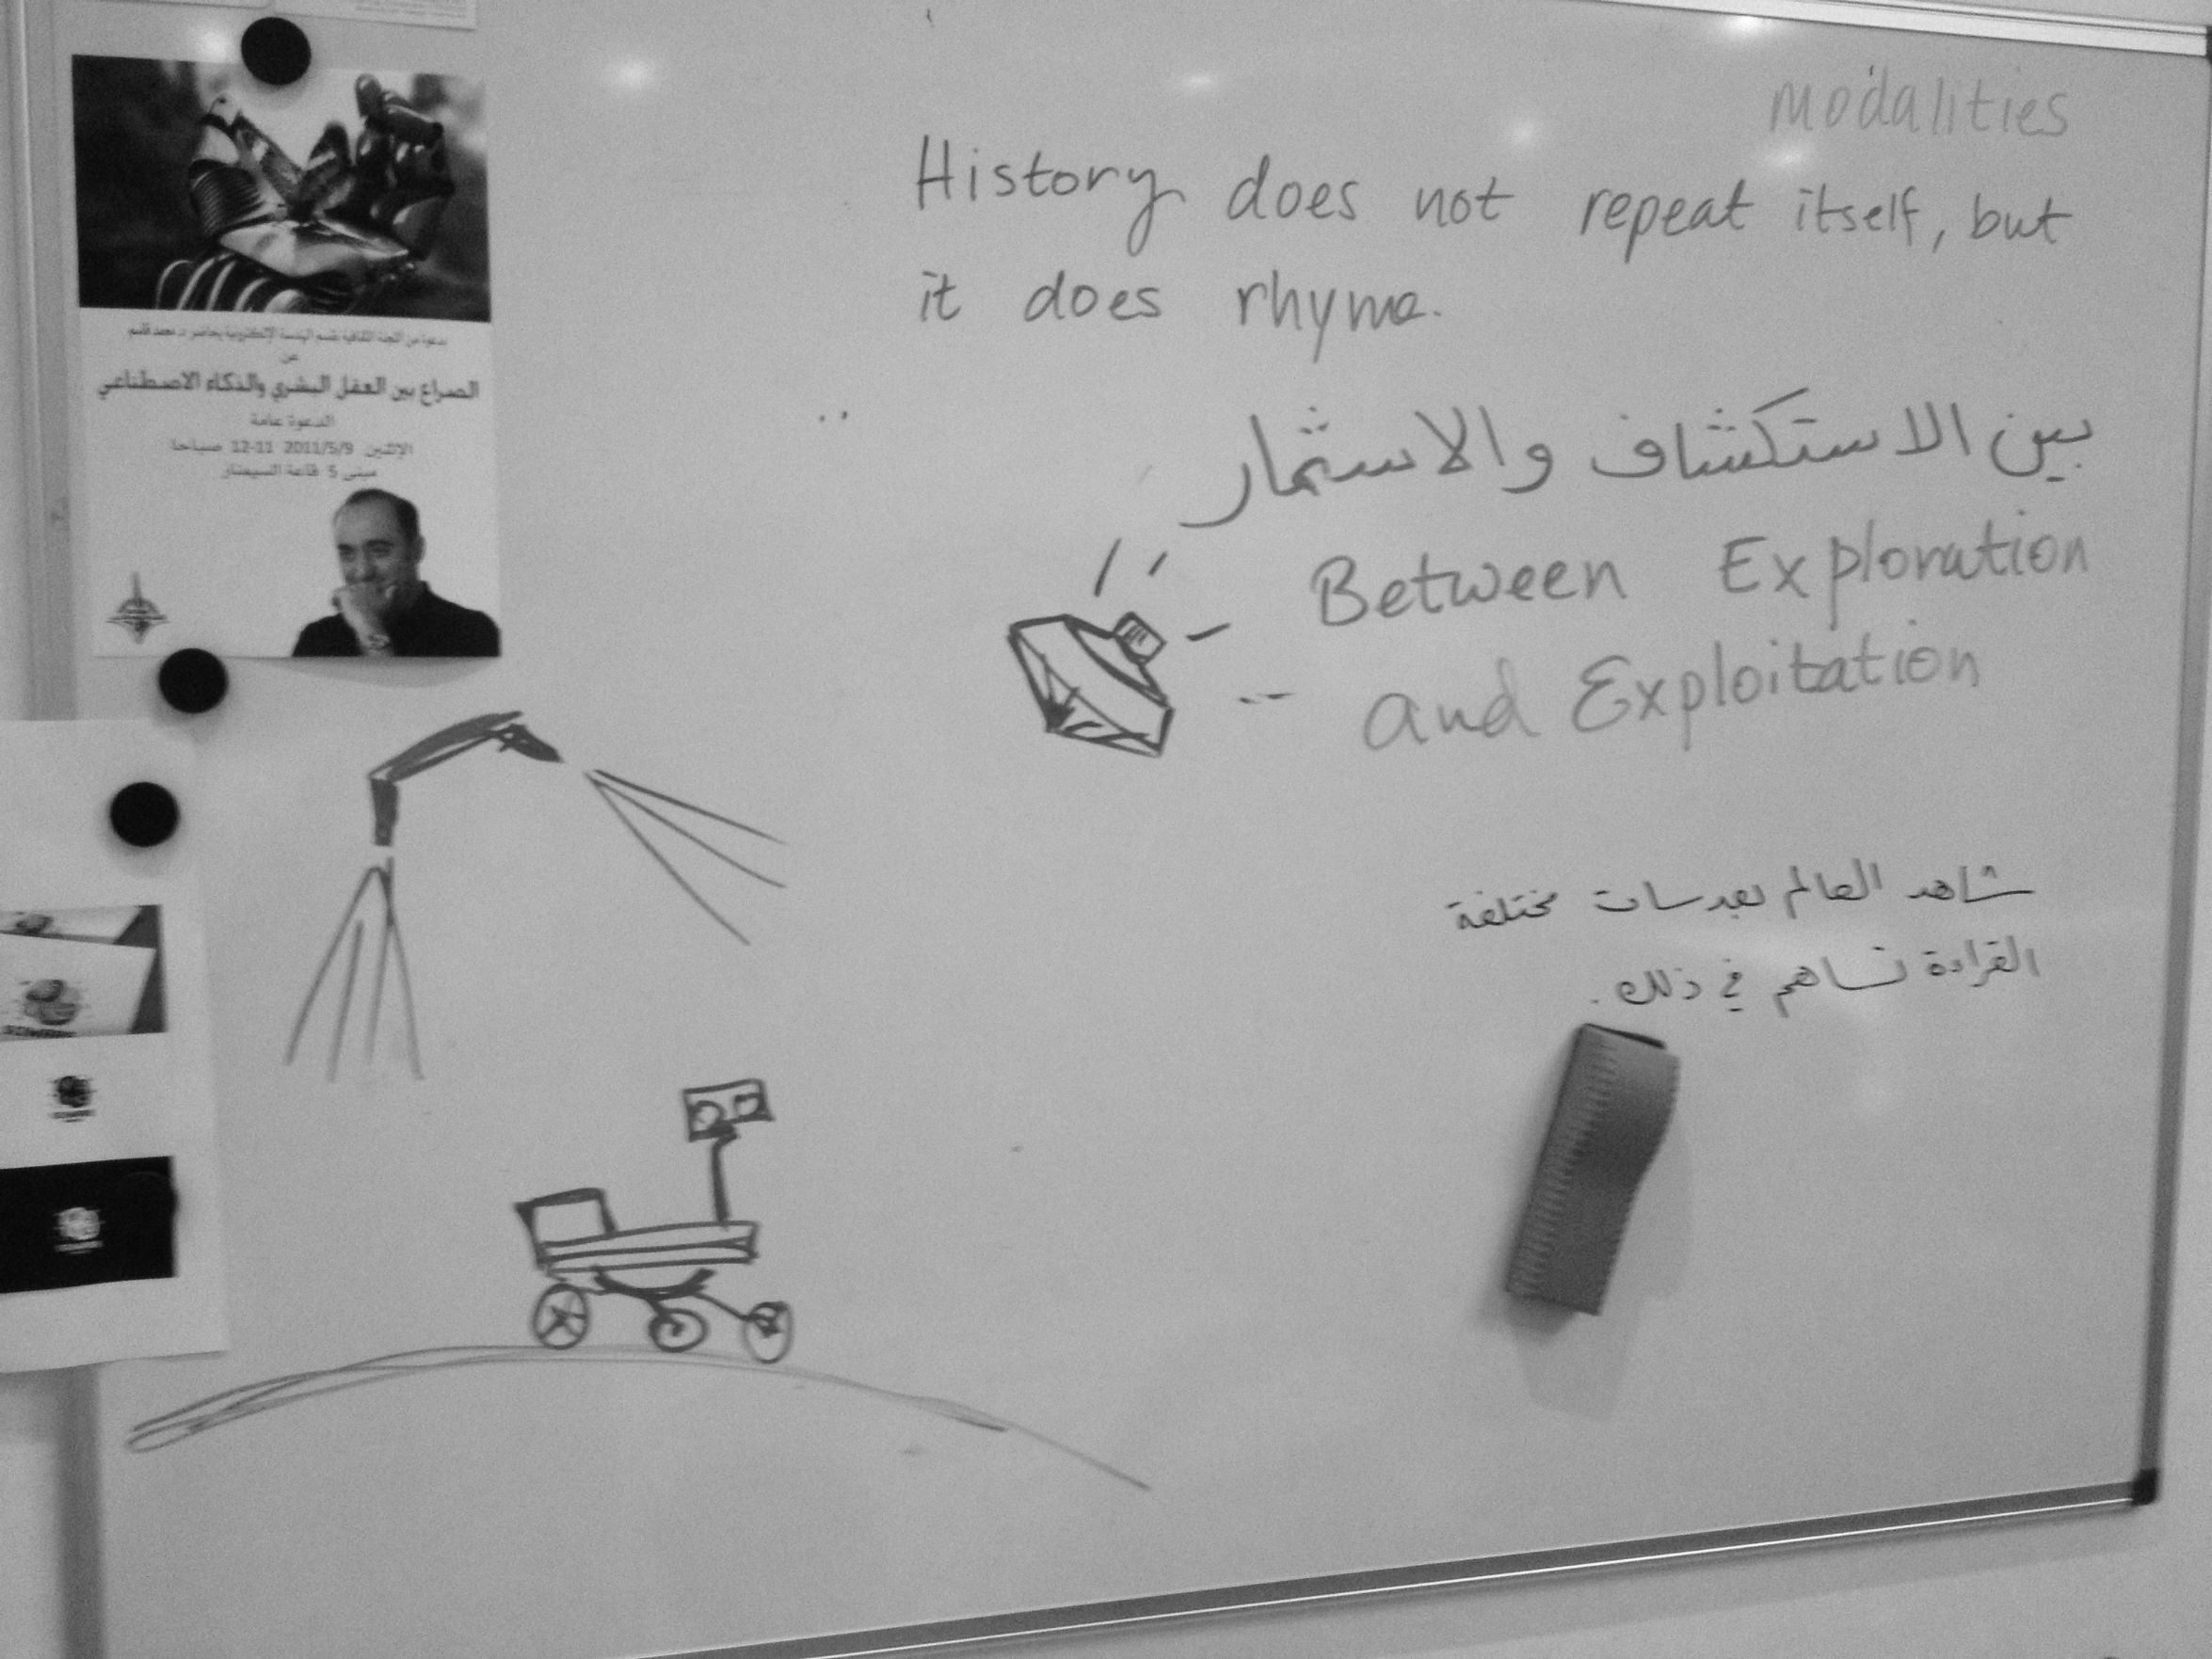 modalities
History does not repeat itself, but
it does rhyme.
بين الاستكشاف والاستثمار
Between Exploration
and Exploitation
شاهد العالم بعدسات مختلفة
القراءة تساهم في ذلك.
دعوة من اللجنة الثقافية بقسم الهندسة الإلكترونية يحاضر د. محمد قاسم
عن
الصراع بين العقل البشري والذكاء الاصطناعي
الدعوة عامة
الإثنين 2011/5/9 11-12 صباحا
مبنى 5 قاعة السيمنار